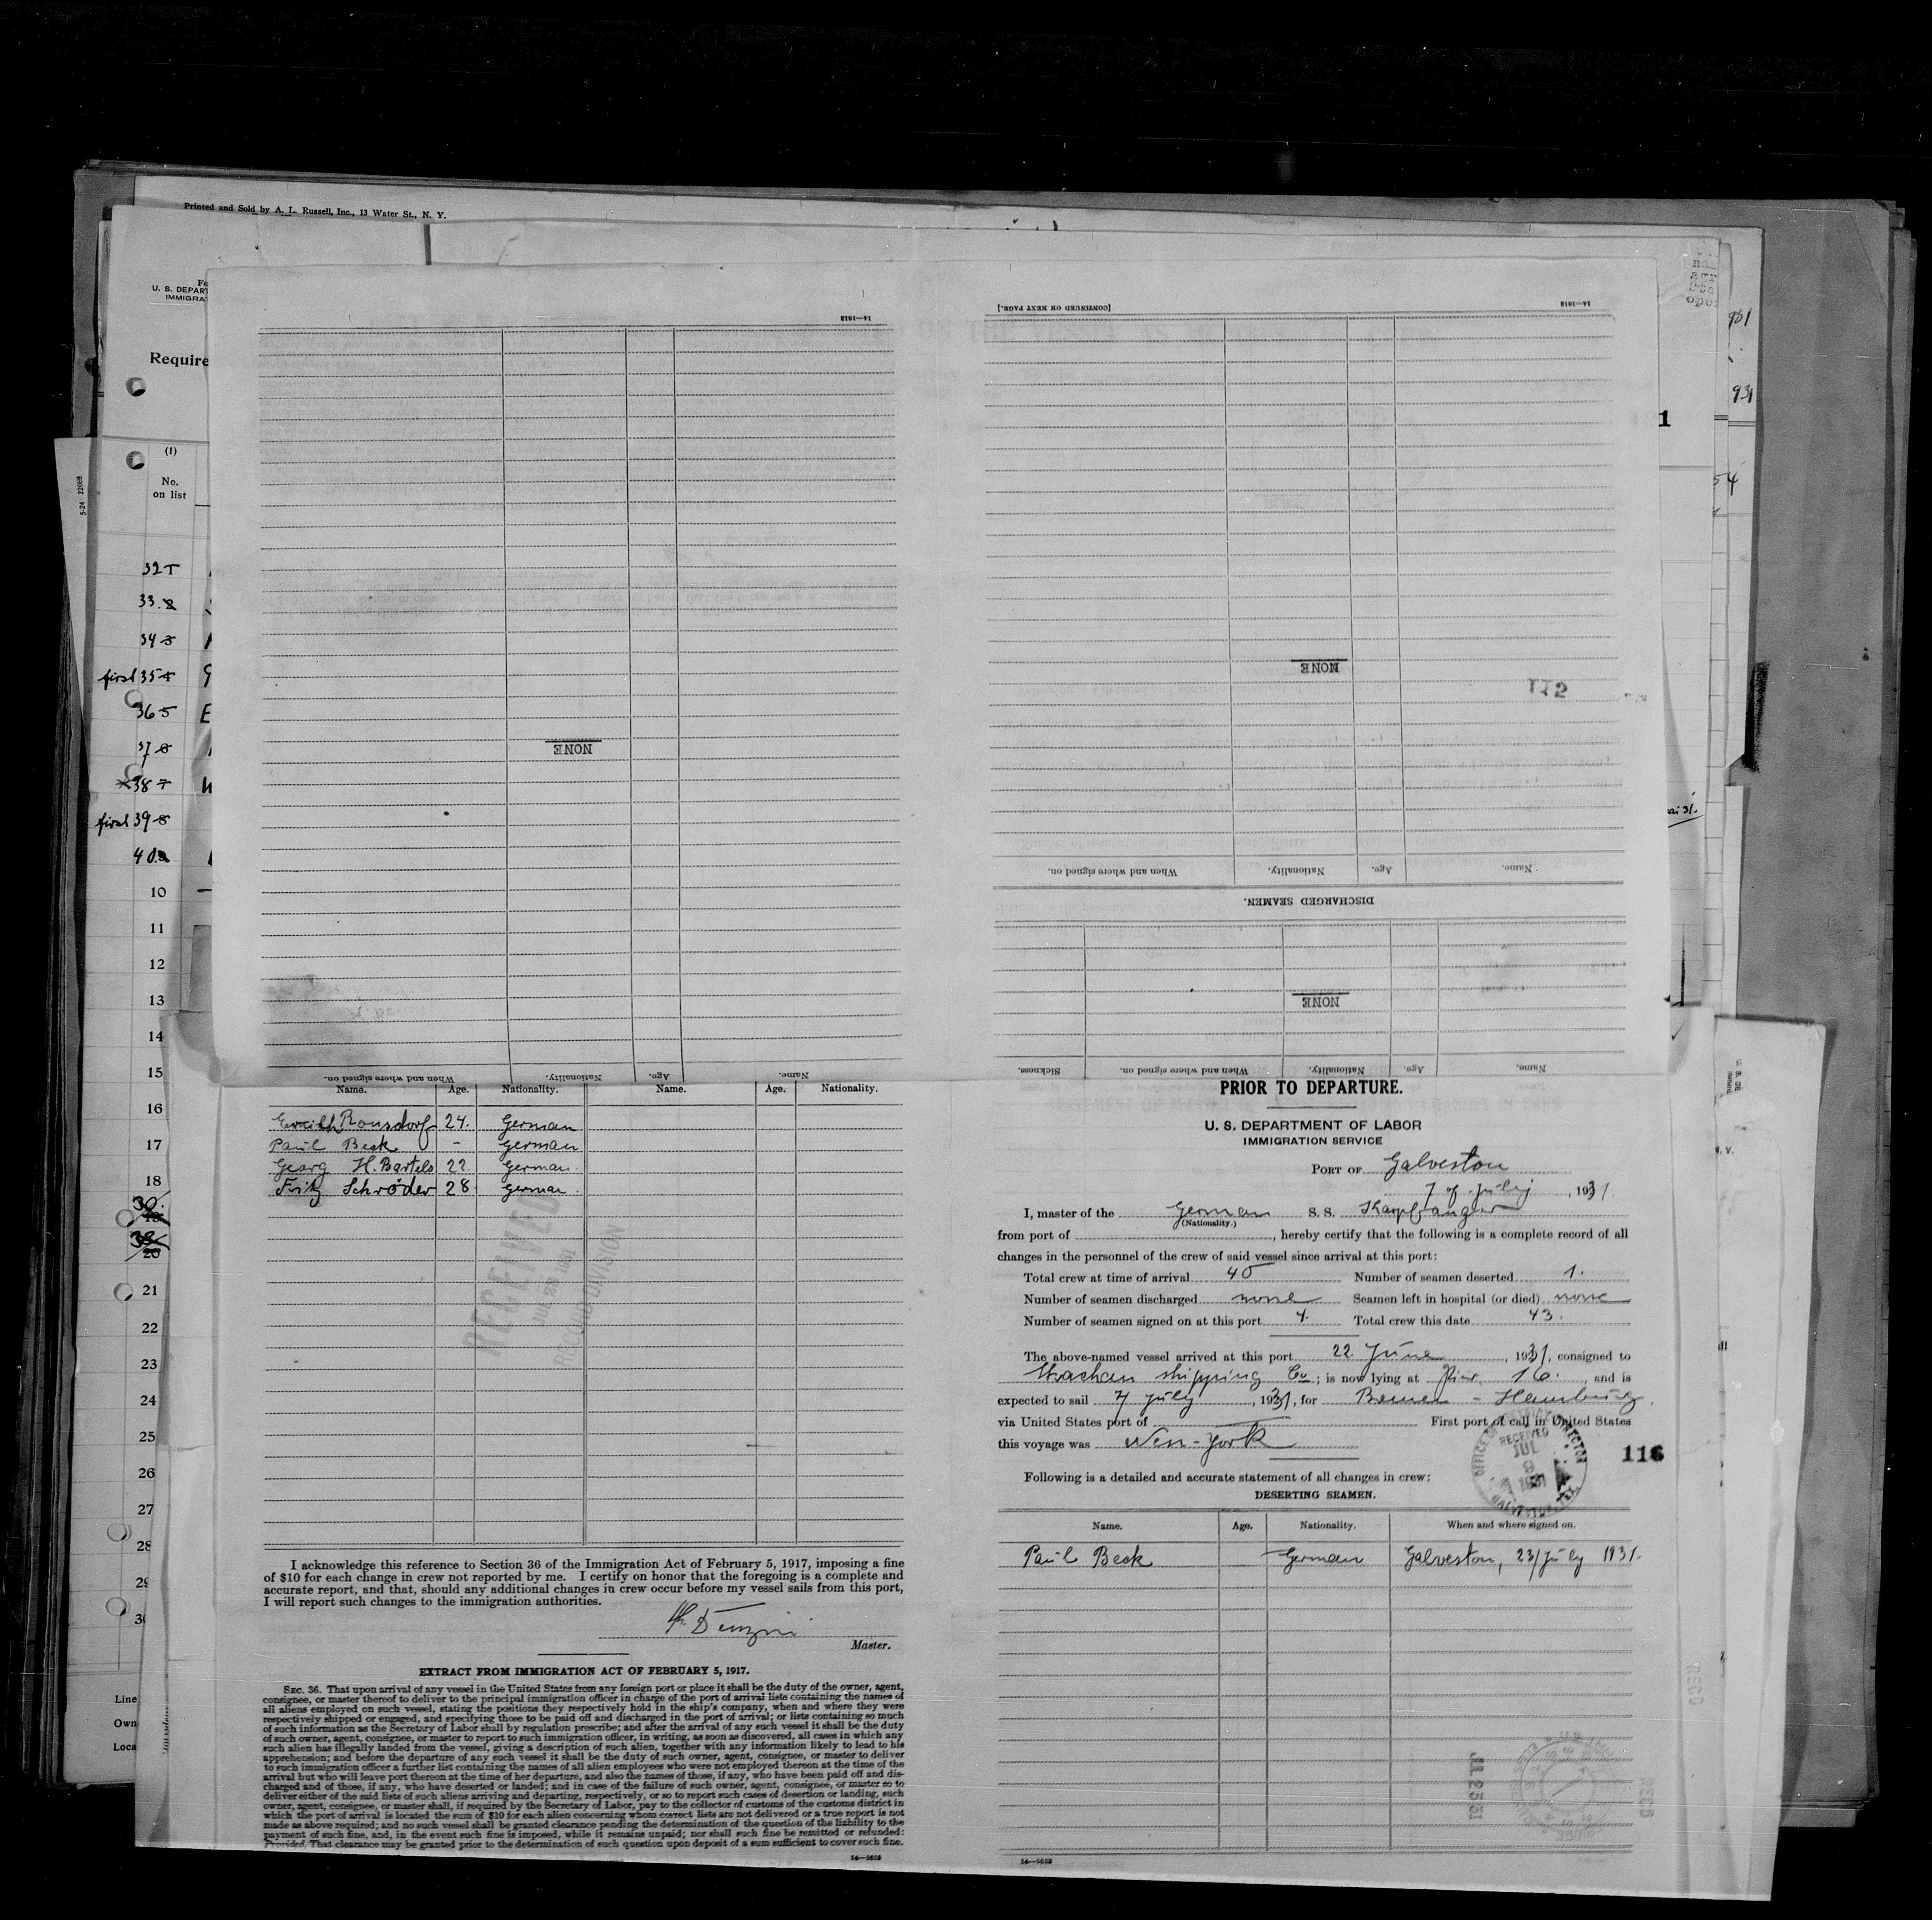 Printed and Sold by A. L. Russell, Inc., 13 Water St., N. Y.
U. S. DEPAR
IMMIGRA
Require
(1)
No.
on list
5-24 22068
32
33
34
first 35
36
37
38
first 39
40
10
11
12
13
14
15
16
17
18
20
21
22
23
24
25
26
27
28
29
30
Line
Own
Loca
14—1618
NONE
Name. Age. Nationality. When and where signed on.
[CONTINUED ON NEXT PAGE.]
14—1618
NONE
112
Name. Age. Nationality. When and where signed on.
DISCHARGED SEAMEN.
NONE
Name. Age. Nationality. When and where signed on. Sickness.
931
931
1
Name. Age. Nationality. Name. Age. Nationality.
Ronsdorf 24. German
Paul Beck - German
Georg H. Bartels 22 German.
Fritz Schröder 28 German.
RECEIVED
RECORD DIVISION
I acknowledge this reference to Section 36 of the Immigration Act of February 5, 1917, imposing a fine
of $10 for each change in crew not reported by me. I certify on honor that the foregoing is a complete and
accurate report, and that, should any additional changes in crew occur before my vessel sails from this port,
I will report such changes to the immigration authorities.
Master.
EXTRACT FROM IMMIGRATION ACT OF FEBRUARY 5, 1917.
SEC. 36. That upon arrival of any vessel in the United States from any foreign port or place it shall be the duty of the owner, agent,
consignee, or master thereof to deliver to the principal immigration officer in charge of the port of arrival lists containing the names of
all aliens employed on such vessel, stating the positions they respectively hold in the ship's company, when and where they were
respectively shipped or engaged, and specifying those to be paid off and discharged in the port of arrival; or lists containing so much
of such information as the Secretary of Labor shall by regulation prescribe; and after the arrival of any such vessel it shall be the duty
of such owner, agent, consignee, or master to report to such immigration officer, in writing, as soon as discovered, all cases in which any
such alien has illegally landed from the vessel, giving a description of such alien, together with any information likely to lead to his
apprehension; and before the departure of any such vessel it shall be the duty of such owner, agent, consignee, or master to deliver
to such immigration officer a further list containing the names of all alien employees who were not employed thereon at the time of the
arrival but who will leave port thereon at the time of her departure, and also the names of those, if any, who have been paid off and dis-
charged and of those, if any, who have deserted or landed; and in case of the failure of such owner, agent, consignee, or master so to
deliver either of the said lists of such aliens arriving and departing, respectively, or so to report such cases of desertion or landing, such
owner, agent, consignee, or master shall, if required by the Secretary of Labor, pay to the collector of customs of the customs district in
which the port of arrival is located the sum of $10 for each alien concerning whom correct lists are not delivered or a true report is not
made as above required; and no such vessel shall be granted clearance pending the determination of the question of the liability to the
payment of such fine, and, in the event such fine is imposed, while it remains unpaid; nor shall such fine be remitted or refunded:
Provided, That clearance may be granted prior to the determination of such question upon deposit of a sum sufficient to cover such fine.
14—1618
PRIOR TO DEPARTURE.
U. S. DEPARTMENT OF LABOR
IMMIGRATION SERVICE
PORT OF Galveston
7 of July, 1931.
I, master of the German S. S. Karpfanger
(Nationality.)
from port of , hereby certify that the following is a complete record of all
changes in the personnel of the crew of said vessel since arrival at this port:
Total crew at time of arrival 40 Number of seamen deserted 1.
Number of seamen discharged none Seamen left in hospital (or died) none
Number of seamen signed on at this port 4. Total crew this date 43.
The above-named vessel arrived at this port 22 June, 1931, consigned to
Strachan shipping Co; is now lying at Pier 16., and is
expected to sail 7 July, 1931, for Bremen - Hamburg.
via United States port of First port of call in United States
this voyage was New-York
OFFICE OF DISTRICT DIRECTOR
RECEIVED
JUL
8
1931
GALVESTON, TEX.
116
Following is a detailed and accurate statement of all changes in crew:
DESERTING SEAMEN.
Name. Age. Nationality. When and where signed on.
Paul Beck German Galveston, 23/July 1931.
14—1618